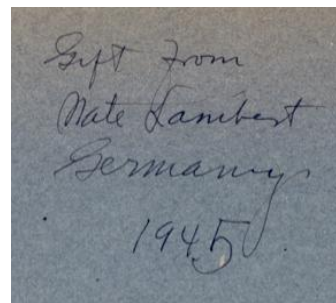 Gift From
Nate Lambert
Germany
1945